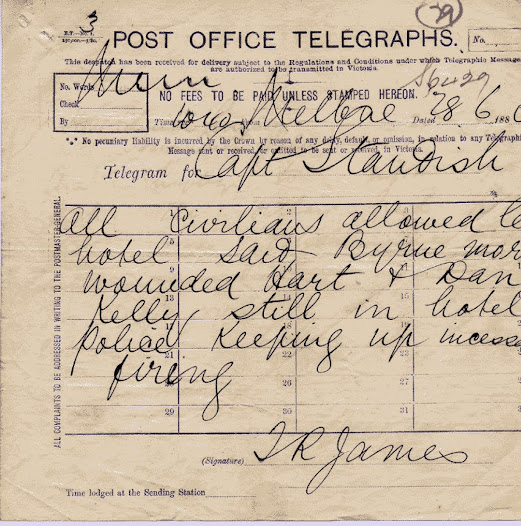 3
79
E.T.—No. 1.
POST OFFICE TELEGRAPHS.
No.
This despatch has been received for delivery subject to the Regulations and Conditions under which Telegraphic Messages
are authorized to be transmitted in Victoria.
S6429
No. Words
Check
By
NO FEES TO BE PAID UNLESS STAMPED HEREON.
Time
Melbne
Dated 28 6 188
*** No pecuniary liability is incurred by the Crown by reason of any delay, default, or omission, in relation to any Telegraphi
Message sent or received, or omitted to be sent or received, in Victoria.
Telegram for Capt Standish
ALL COMPLAINTS TO BE ADDRESSED IN WRITING TO THE POSTMASTER-GENERAL.
1 2 3
All civilians allowed le
5
hotel said Byrne mor
wounded Hart & Dan
13 14 15
Kelly still in hotel
police keeping up incess
21 22 23
firing
26 27
29 30 31
(Signature) T R James
Time lodged at the Sending Station